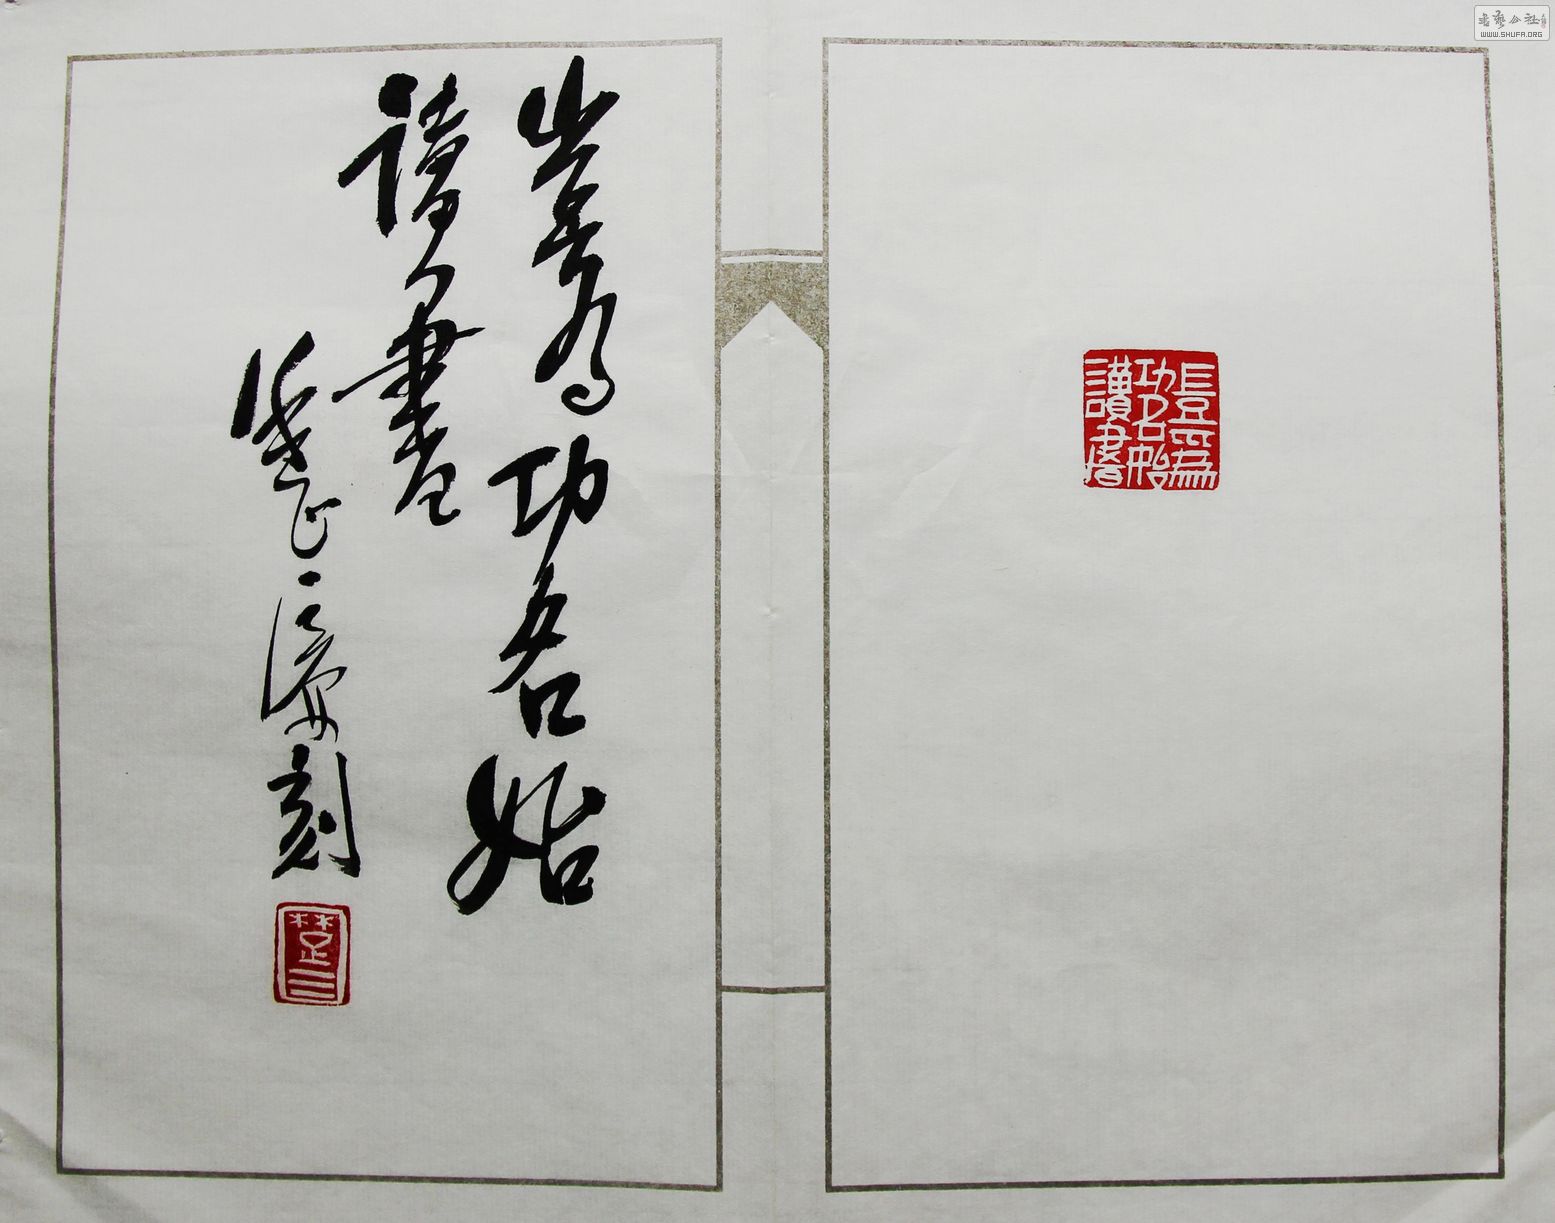 豈為
功名始
讀書
豈爲功名始
讀書
刻
楚三
書藝公社
WWW.SHUFA.ORG